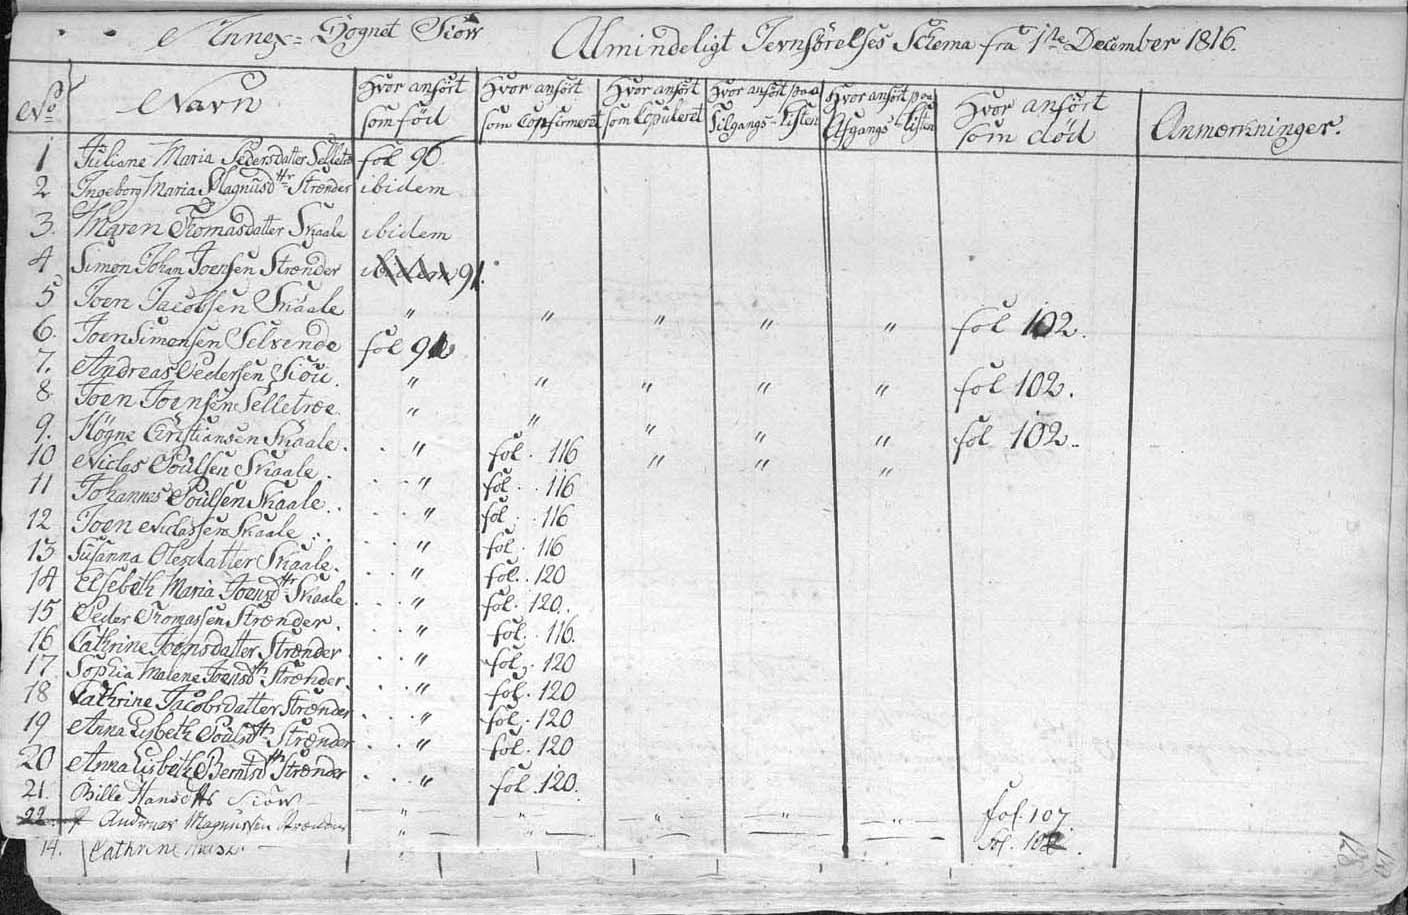 Annex-Sognet Siow Almindeligt Jevnførelses Schema fra 1ste December 1816.
No Navn Hvor anført som fød Hvor anført som Confirmeret Hvor anført som Copuleret Hvor anført paa Tilgangs-Listen Hvor anført paa Afgangs-Listen Hvor anført som død Anmærkninger.
1 Juliane Maria Pedersdatter Selletræ fol 96
2 Ingeborg Maria Magnusdtr Strænder ibidem
3. Maren Thomasdatter Skaale ibidem
4 Simon Johan Joensen Strænder ibidem 91.
5 Joen Jacobsen Skaale " " " " " fol 102.
6. Joen Simonsen Selvende fol 91
7. Andreas Pedersen Siou. " " " " " fol 102.
8. Joen Joensen Selletræe. " " " " " fol 102.
9. Høgne Christiansen Skaale. " fol. 116 " " "
10 Niclas Poulsen Skaale. " fol. 116
11 Johannes Poulsen Skaale. " fol. 116
12 Joen Niclassen Skaale " fol. 116
13 Susanna Olesdatter Skaale. " fol. 120
14 Elsebeth Maria Joensdtr Skaale " fol. 120.
15 Peder Thomassen Strænder. " fol. 116.
16 Cathrine Joensdatter Strænder " fol. 120
17. Sophia Malene Joensdtr Strænder. " fol. 120
18 Cathrine Jacobsdatter Strænder " fol. 120
19 Anna Lisbeth Poulsdtr Strænder " fol. 120
20 Anna Lisbeth Berntsdtr Strænder " fol. 120.
21. Bille Hansdtr Siow " " " " " fol. 107
22. Andreas Magnussen Strænder " " fol. 102
14. Cathrine "
128